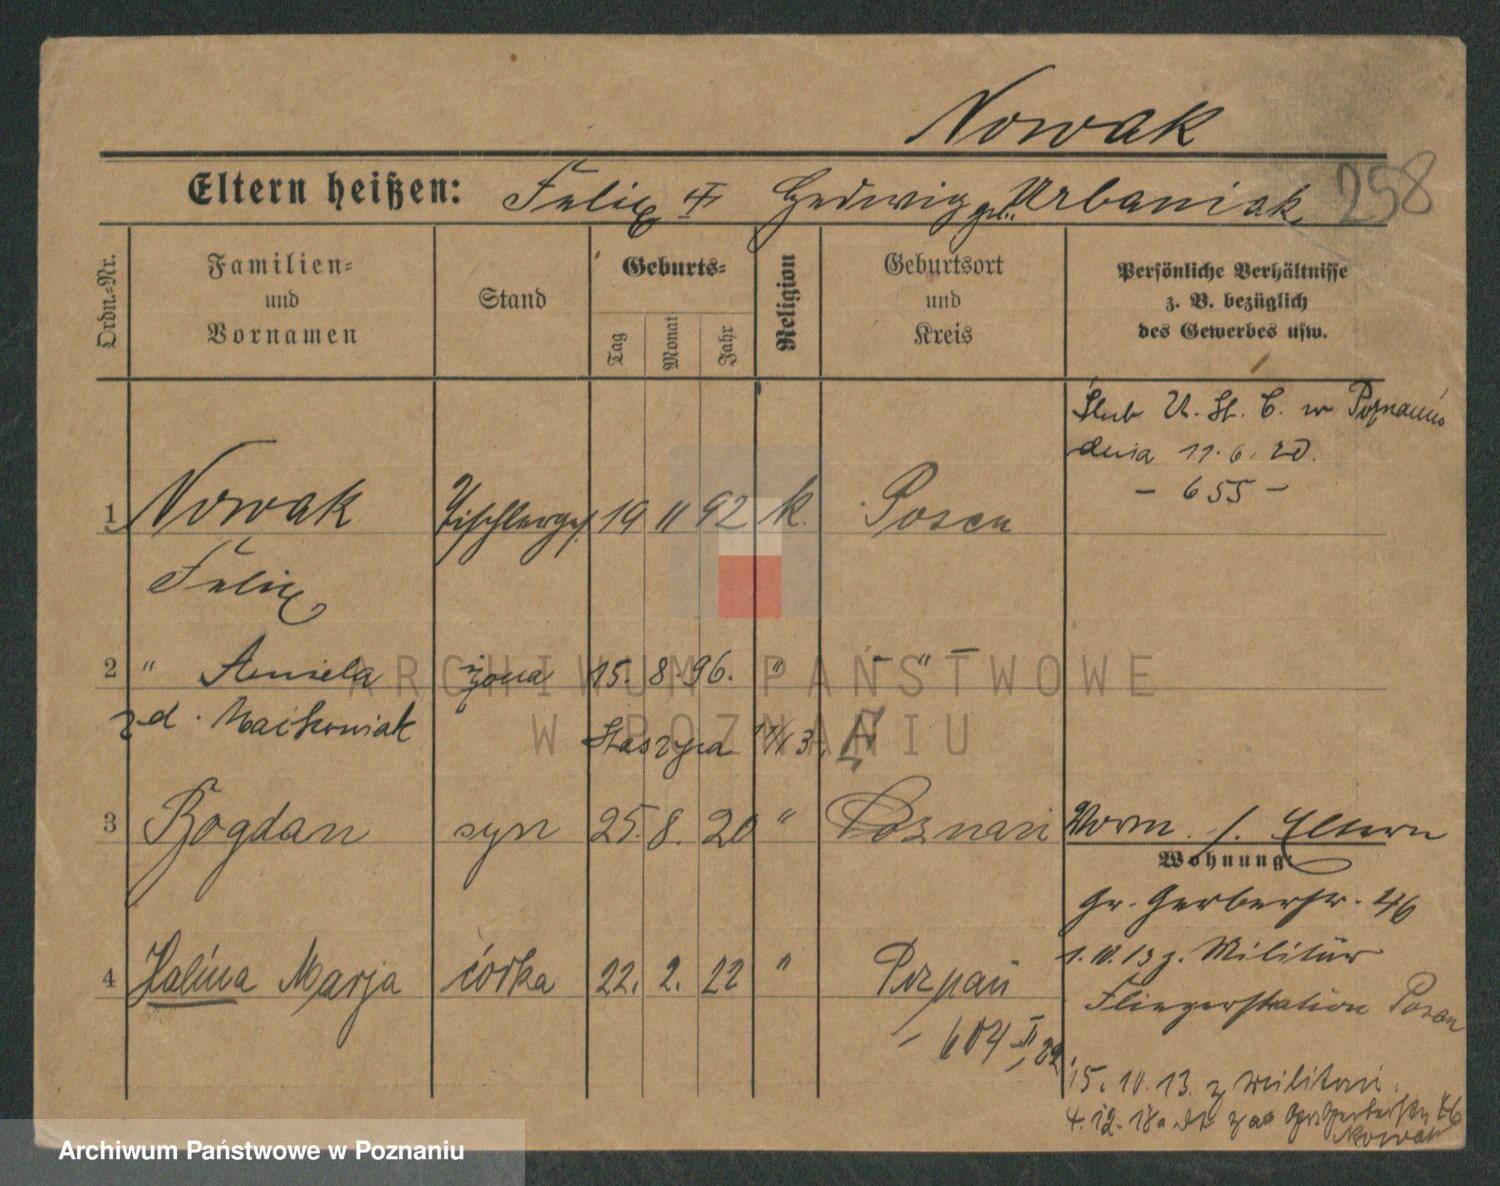 Nowak
258
Eltern heißen: Felix Hedwig Urbaniak
Ordn.=Nr.
Familien=
und
Vornamen
Stand
Geburts=
Tag
Monat
Jahr
Religion
Geburtsort
und
Kreis
Persönliche Verhältnisse
z. B. bezüglich
des Gewerbes usw.
Ślub U. St. C. w Poznaniu
dnia 11. 6. 20.
- 655 -
1 Nowak Tischlerges. 19 11 92 k. Posen
Felix
2 " Aniela żona 15. 8. 96. " - " -
zd. Maćkowiak Staszyca
3 Bogdan syn 25. 8. 20 " Poznań
Vorm. Eltern
Wohnung:
Gr. Gerberstr. 46
z. Militär
Fliegerstation Posen
4 Halina Marja córka 22. 2. 22 " Poznań
604 II 22
15. 10. 13. z Militär
4. 12. 18 46
Nowak
ARCHIWUM PAŃSTWOWE
W POZNANIU
Archiwum Państwowe w Poznaniu